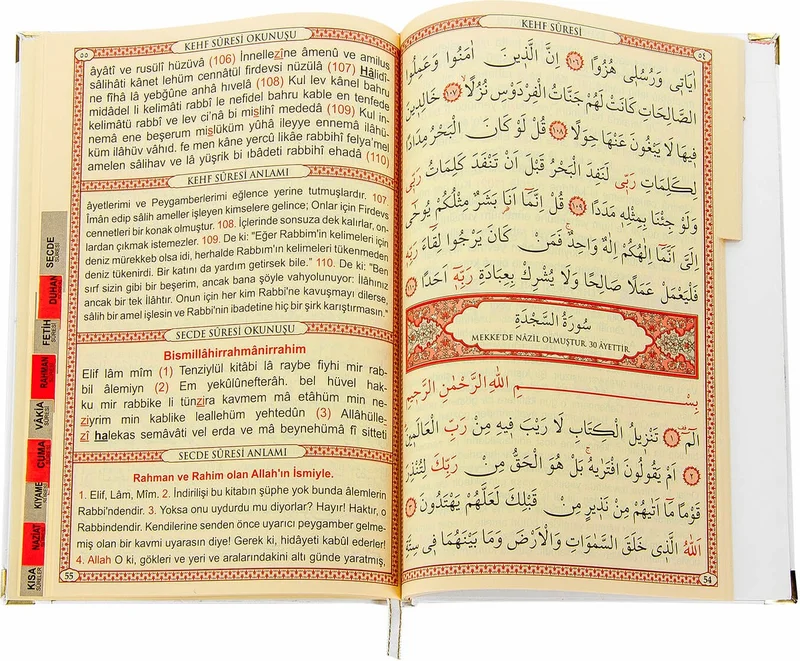 KEHF SÛRESİ
٥٤
اٰيَاتٖي وَرُسُلٖي هُزُوًا ﴿١٠٦﴾ اِنَّ الَّذٖينَ اٰمَنُوا وَعَمِلُوا
الصَّالِحَاتِ كَانَتْ لَهُمْ جَنَّاتُ الْفِرْدَوْسِ نُزُلًا ﴿١٠٧﴾ خَالِدٖينَ
فٖيهَا لَا يَبْغُونَ عَنْهَا حِوَلًا ﴿١٠٨﴾ قُلْ لَوْ كَانَ الْبَحْرُ مِدَادًا
لِكَلِمَاتِ رَبّٖي لَنَفِدَ الْبَحْرُ قَبْلَ اَنْ تَنْفَدَ كَلِمَاتُ رَبّٖي
وَلَوْ جِئْنَا بِمِثْلِهٖ مَدَدًا ﴿١٠٩﴾ قُلْ اِنَّمَٓا اَنَا۬ بَشَرٌ مِثْلُكُمْ يُوحٰٓى
اِلَيَّ اَنَّمَٓا اِلٰهُكُمْ اِلٰهٌ وَاحِدٌۚ فَمَنْ كَانَ يَرْجُوا لِقَٓاءَ رَبِّهٖ
فَلْيَعْمَلْ عَمَلًا صَالِحًا وَلَا يُشْرِكْ بِعِبَادَةِ رَبِّهٖٓ اَحَدًا ﴿١١٠﴾
سُورَةُ السَّجْدَةِ
MEKKE'DE NÂZİL OLMUŞTUR 30 ÂYETTİR
بِسْمِ اللّٰهِ الرَّحْمٰنِ الرَّحٖيمِ
الٓمٓ ﴿١﴾ تَنْزٖيلُ الْكِتَابِ لَا رَيْبَ فٖيهِ مِنْ رَبِّ الْعَالَمٖينَ
﴿٢﴾ اَمْ يَقُولُونَ افْتَرٰيهُۚ بَلْ هُوَ الْحَقُّ مِنْ رَبِّكَ لِتُنْذِرَ
قَوْمًا مَٓا اَتٰيهُمْ مِنْ نَذٖيرٍ مِنْ قَبْلِكَ لَعَلَّهُمْ يَهْتَدُونَ ﴿٣﴾
اَللّٰهُ الَّذٖي خَلَقَ السَّمٰوَاتِ وَالْاَرْضَ وَمَا بَيْنَهُمَا فٖي سِتَّةِ
54
KEHF SÛRESİ OKUNUŞU
٥٥
âyâtî ve rusulî hüzüvâ (106) İnnellezîne âmenû ve amilus
sâlihâti kânet lehüm cennâtül firdevsi nüzülâ (107) Hâlidî-
ne fîhâ lâ yebğûne anhâ hıvelâ (108) Kul lev kânel bahru
midâdel li kelimâti rabbî le nefidel bahru kable en tenfede
kelimâtü rabbî ve lev ci'nâ bi mislihî mededâ (109) Kul in-
nemâ ene beşerum mislüküm yûhâ ileyye ennemâ ilâhü-
küm ilâhüv vâhıd. fe men kâne yercû likâe rabbihî felya'mel
amelen sâlihav ve lâ yüşrik bi ıbâdeti rabbihî ehadâ (110)
KEHF SÛRESİ ANLAMI
âyetlerimi ve Peygamberlerimi eğlence yerine tutmuşlardır. 107.
Îmân edip sâlih ameller işleyen kimselere gelince; Onlar için Firdevs
cennetleri bir konak olmuştur. 108. İçlerinde sonsuza dek kalırlar, on-
lardan çıkmak istemezler. 109. De ki: "Eğer Rabbim'in kelimeleri için
deniz mürekkeb olsa idi, herhalde Rabbım'ın kelimeleri tükenmeden
deniz tükenirdi. Bir katını da yardım getirsek bile." 110. De ki: "Ben
sırf sizin gibi bir beşerim, ancak bana şöyle vahyolunuyor: İlâhınız
ancak bir tek İlâhtır. Onun için her kim Rabbi'ne kavuşmayı dilerse,
sâlih bir amel işlesin ve Rabbi'nin ibadetine hiç bir şirk karıştırmasın."
SECDE SÛRESİ OKUNUŞU
Bismillâhirrahmânirrahim
Elif lâm mîm (1) Tenziylül kitâbi lâ raybe fiyhi mir rab-
bil âlemiyn (2) Em yekûlûnefterâh. bel hüvel hak-
ku mir rabbike li tünzira kavmem mâ etâhüm min ne-
ziyrim min kablike leallehüm yehtedûn (3) Allâhülle-
zî halekas semâvâti vel erda ve mâ beynehümâ fî sitteti
SECDE SÛRESİ ANLAMI
Rahman ve Rahim olan Allah'ın İsmiyle.
1. Elif, Lâm, Mîm. 2. İndirilişi bu kitabın şüphe yok bunda âlemlerin
Rabbi'ndendir. 3. Yoksa onu uydurdu mu diyorlar? Hayır! Haktır, o
Rabbindendir. Kendilerine senden önce uyarıcı peygamber gelme-
miş olan bir kavmi uyarasın diye! Gerek ki, hidâyeti kabûl ederler!
4. Allah O ki, gökleri ve yeri ve aralarındakini altı günde yaratmış,
55
SECDE SÛRESİ
DUHAN
FETİH SÛRESİ
RAHMAN
VÂKIA SÛRESİ
CUMA
KIYAME
NAZİAT
KISA SÛRELER